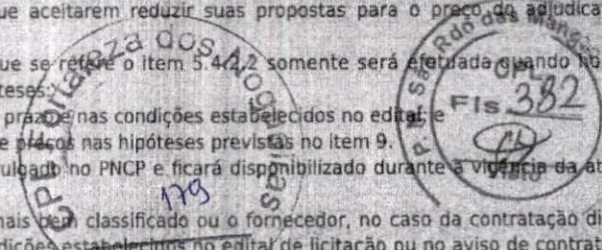 que aceitarem reduzir suas propostas para o preço do adjudicat
que se refere o item 5.4.2.2 somente será efetuada quando
teses:
prazo e nas condições estabelecidos no edital; e
e preços nas hipóteses previstas no item 9.
ulgado no PNCP e ficará disponibilizado durante a vigência da at
mais bem classificado ou o fornecedor, no caso da contratação di
dições estabelecidos no edital de licitação ou no aviso de contrat
Fortaleza dos Nogueiras
179
P. M. São Rdo das Mang
CPL
Fls 382
Visto